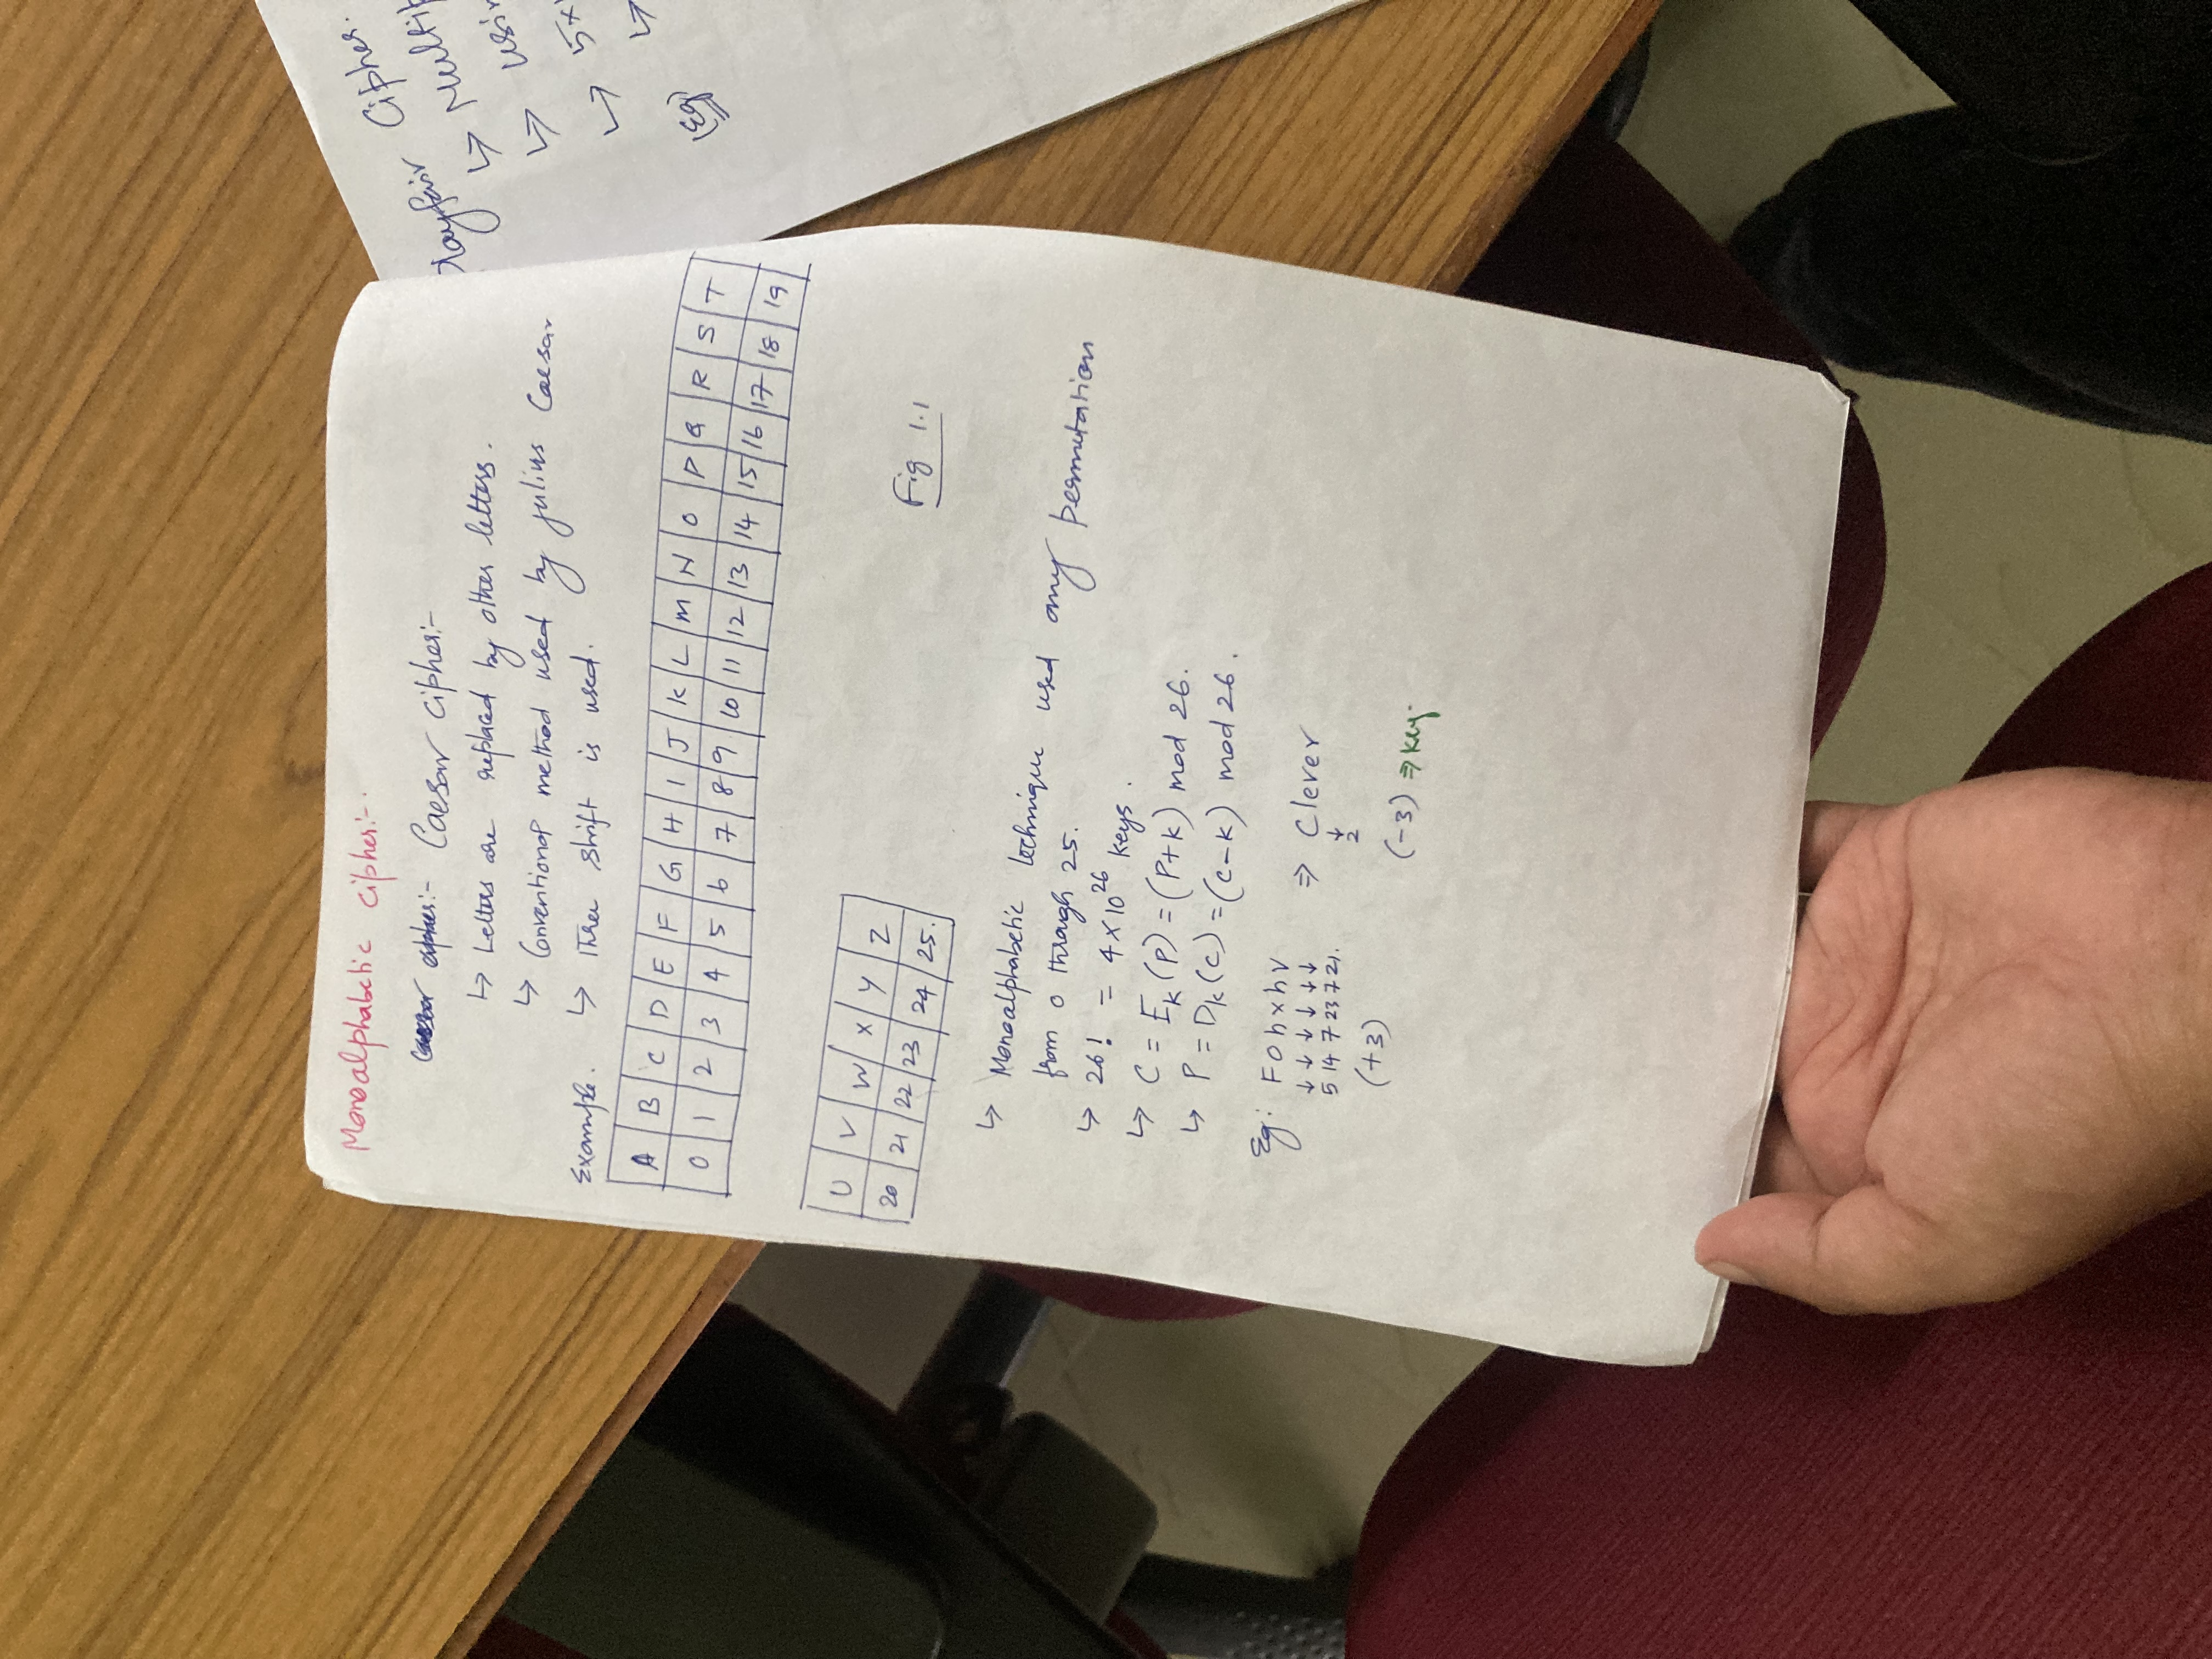 Monoalphabetic Cipher:-.
Caesar cipher:- Caesar Cipher:-
↳ Letters are replaced by other letters.
↳ Conventional method used by julius Caesar
Example. ↳ Three shift is used.
A B C D E F G H I J K L M N O P Q R S T
0 1 2 3 4 5 6 7 8 9 10 11 12 13 14 15 16 17 18 19
U V W X Y Z
20 21 22 23 24 25.
Fig 1.1
↳ Monoalphabetic technique used any permutation
from 0 through 25.
↳ 26! = 4×10^26 keys.
↳ C = E_K (P) = (P+K) mod 26.
↳ P = D_K (C) = (C-K) mod 26.
Eg: F O h x h V ⇒ Clever
↓ ↓ ↓ ↓ ↓ ↓ ↓
5 14 7 23 7 21. 2
(+3) (-3) ⇒ Key.
Playfair Cipher.
↳
↳
↳ 5×
↳
(Eg)